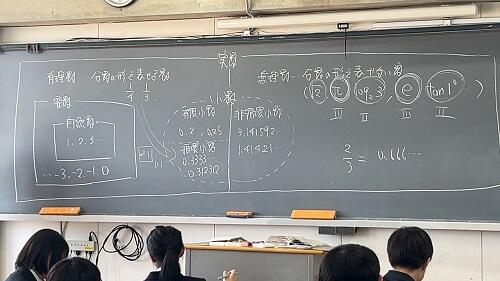 実数
有理数…分数の形で表せる数
1/4 1/3
整数
自然数
1, 2, 3 …
… -3, -2, -1, 0
小数
有限小数
0.2, 0.25
循環小数
0.3333…
0.312312
非循環小数
3.141592…
1.41421…
無理数…分数の形で表せない数
(√2 π log₂3 e tan1°)
III II III II
2/3 = 0.666…